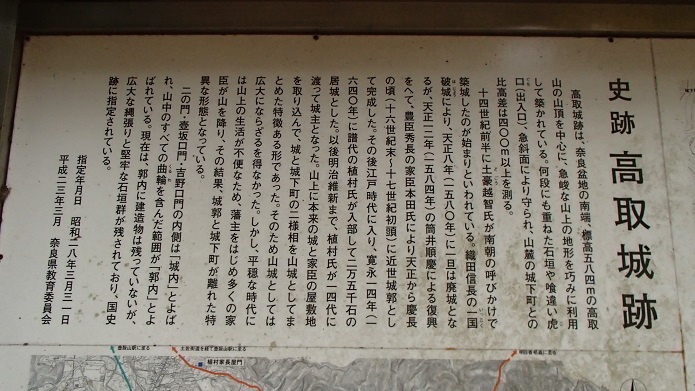 史跡 高取城跡
高取城跡は、奈良盆地の南端、標高五八四ｍの高取
山の山頂を中心に、急峻な山上の地形を巧みに利用
して築かれている。何段にも重ねた石垣や喰違い虎
口（出入口）、急斜面により守られ、山麓の城下町との
比高差は四〇〇ｍ以上を測る。
十四世紀前半に土豪越智氏が南朝の呼びかけで
築城したのが始まりといわれている。織田信長の一国
破城により、天正八年（一五八〇年）に一旦は廃城とな
るが、天正一二年（一五八四年）の筒井順慶による復興
をへて、豊臣秀長の家臣本田氏により天正から慶長
の頃（十六世紀末～十七世紀初頭）に近世城郭とし
て完成した。その後江戸時代に入り、寛永一四年（一
六四〇年）に譜代の植村氏が入部して二万五千石の
居城とした。以後明治維新まで、植村氏が一四代に
渡って城主となった。山上に本来の城と家臣の屋敷地
を取り込んで、城と城下町の二様相を山城としてま
とめた特徴ある形であった。そのため山城としては
広大にならざるを得なかった。しかし、平穏な時代に
は山上の生活が不便なため、藩主をはじめ多くの家
臣が山を降り、その結果、城郭と城下町が離れた特
異な形態となっている。
二の門・壺坂口門・吉野口門の内側は「城内」とよば
れ、山中のすべての曲輪を含んだ範囲が「郭内」とよ
ばれている。現在は、郭内に建造物は残っていないが、
広大な縄張りと堅牢な石垣群が残されており、国史
跡に指定されている。
指定年月日 昭和二八年三月三一日
平成二三年三月 奈良県教育委員会
植村家長屋門